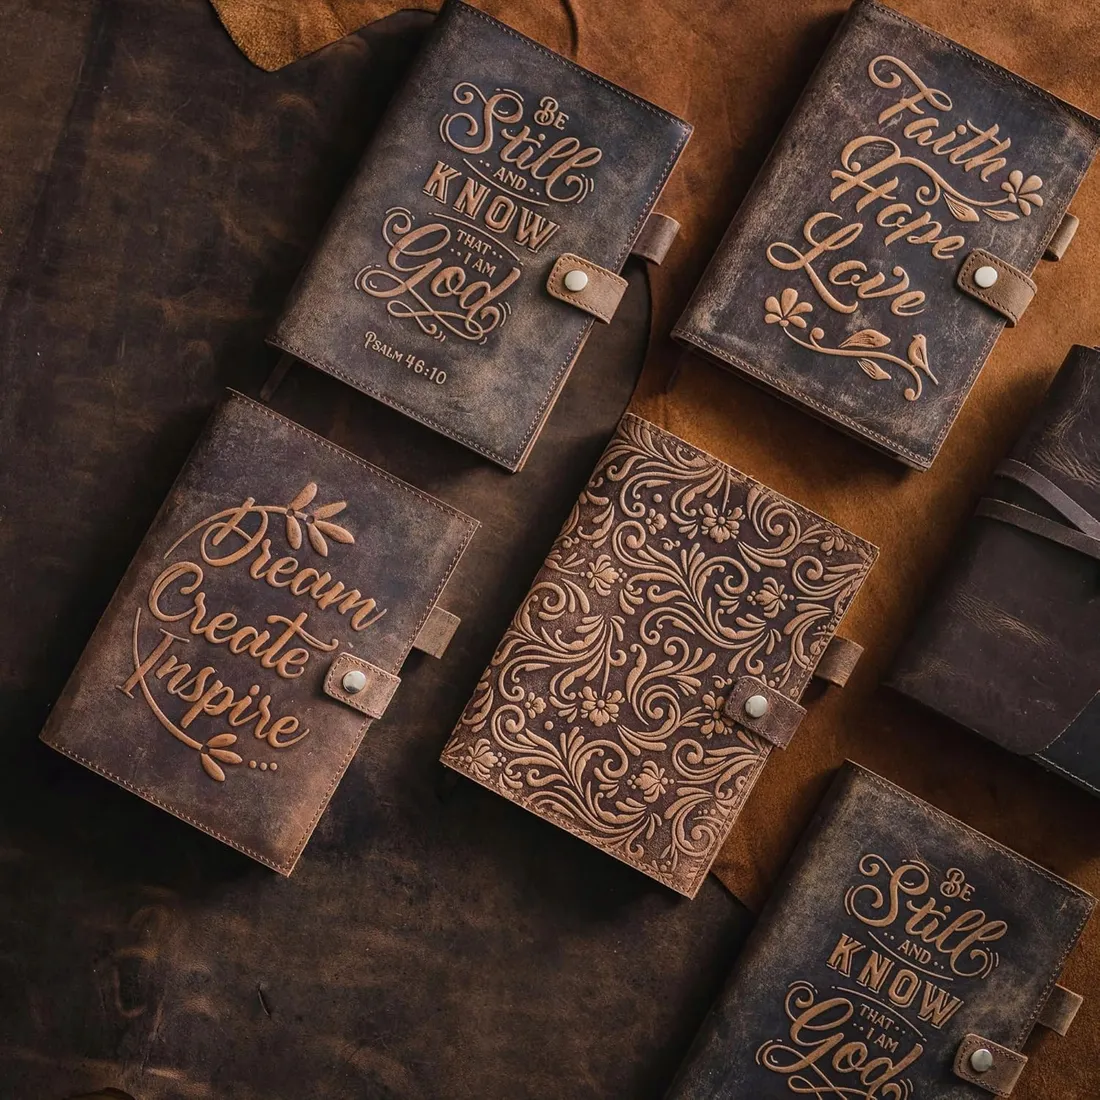 Be
Still
and
Know
That
I am
God
Psalm 46:10
Faith
Hope
Love
Dream
Create
Inspire
Be
Still
and
Know
That
I am
God